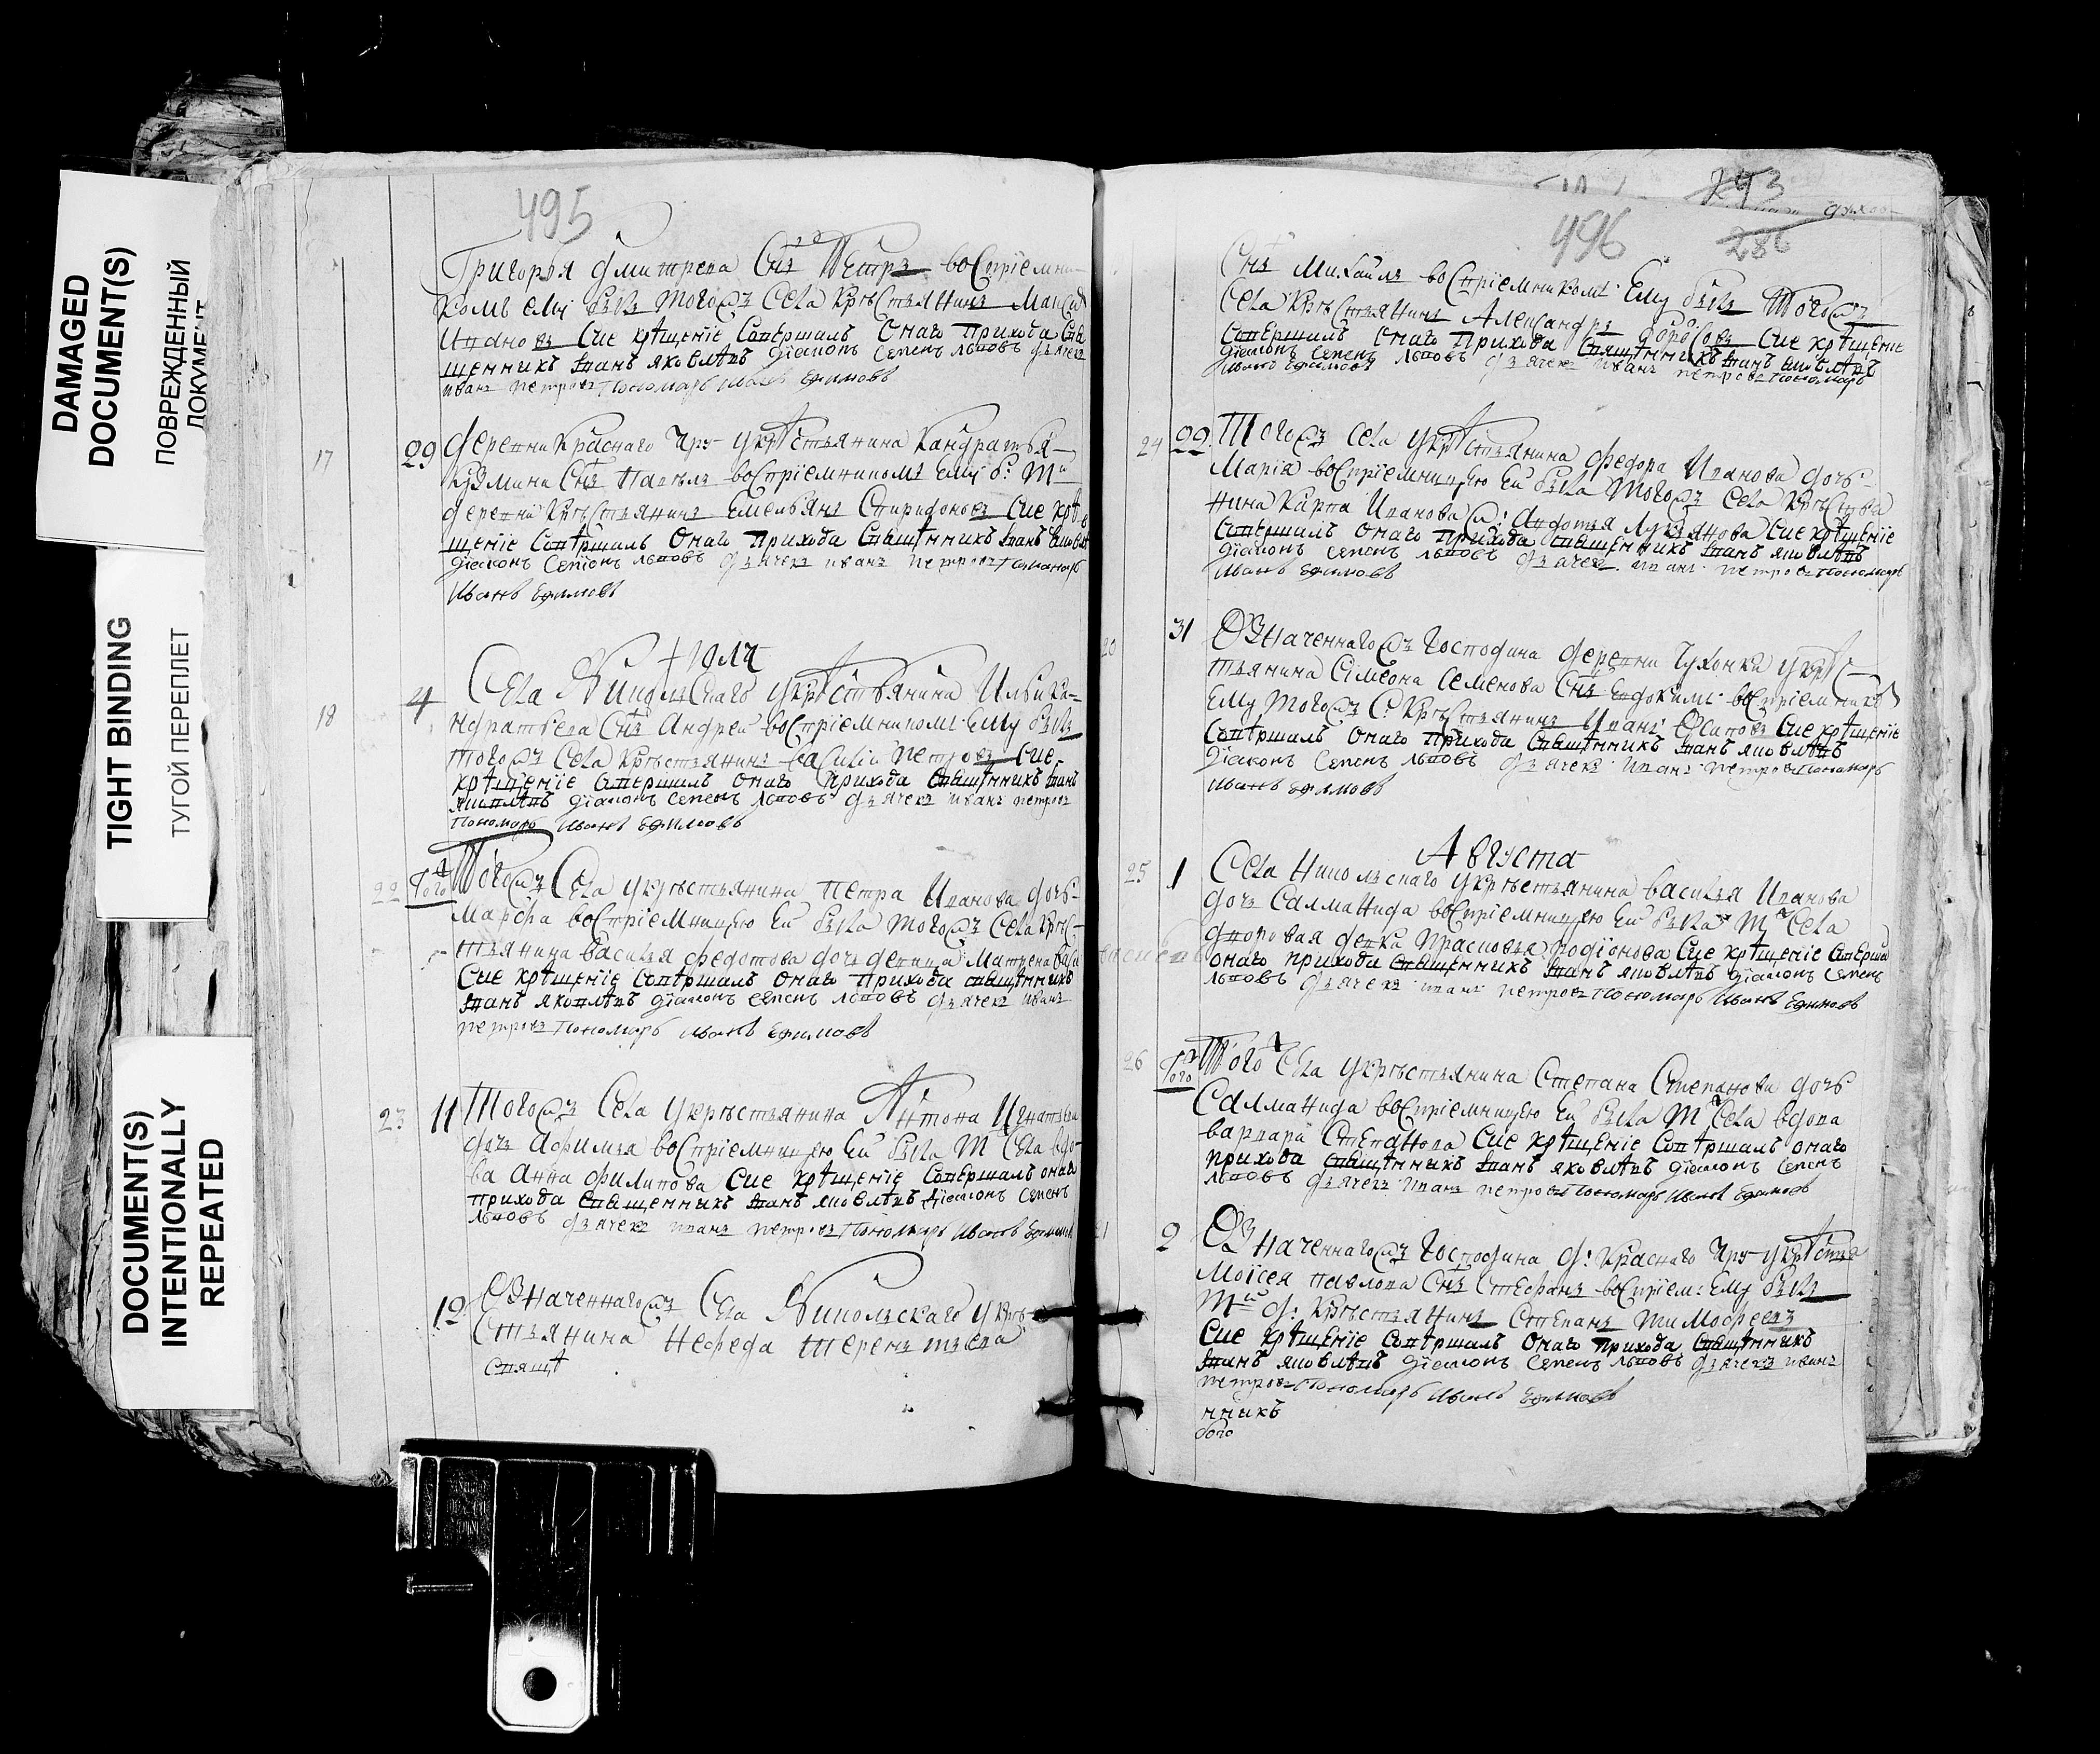 DAMAGED
DOCUMENT(S)
ПОВРЕЖДЕННЫЙ
ДОКУМЕНТ
TIGHT BINDING
ТУГОЙ ПЕРЕПЛЕТ
DOCUMENT(S)
INTENTIONALLY
REPEATED
495
Григорья дмитрева Снъ Петръ восприемни-
комъ ему былъ тогожъ Села крѣстьянинъ
Сие крѣщение Совершалъ Онаго Прихода Свя
щенникъ Iванъ яковлевъ дiаконъ Семенъ львовъ дьячекъ
иванъ петровъ Пономарь иванъ Ефимовъ
17 29 деревни Краснаго Яру укрѣстьянина Кандратья
кузмина Снъ Павелъ восприемникомъ Ему б: тй
деревни Крѣстьянинъ Емельянъ Спиридоновъ Сие крѣ
щенiе Совершалъ Онаго Прихода Священникъ Iванъ яковлевъ
дiаконъ Семионъ львовъ дьячекъ иванъ петровъ Пономарь
Иванъ Ефимовъ
Июля
18 4 Села Никольскаго укрѣстьянина Ильи Ка-
ндратьева Снъ Андрей восприемникомъ Ему былъ
тогожъ Села Крѣстьянинъ василий петровъ Сие
крѣщенiе Совершалъ Онаго Прихода Священникъ Iванъ
яковлевъ дiаконъ Семенъ львовъ дьячекъ иванъ петровъ
Пономарь Иванъ Ефимовъ
22 Того Тогожъ Села укрѣстьянина Петра Иванова дочь
Марфа восприемницею Ей была тогожъ Села крѣс-
тьянина василья федотова дочь девица Матрена
Сие крѣщенiе Совершалъ Онаго Прихода священникъ
Iванъ яковлевъ дiаконъ Семенъ львовъ дьячекъ иванъ
петровъ Пономарь иванъ Ефимовъ
23 11 Тогожъ Села укрѣстьянина Антона Игнатьева
дочь Афимья восприемницею Ей была т Села вдо-
ва Анна филипова Сие крѣщенiе Совершалъ онаго
прихода Священникъ Iванъ яковлевъ дiаконъ Семенъ
львовъ дьячекъ иванъ петровъ Пономарь Иванъ Ефимовъ
19 Означеннагожъ Села Никольскаго укрѣ-
Стьянина Нефеда терентьева
Свяще
243
496
286
Снъ Михайлъ восприемникомъ Ему былъ Тогожъ
Села крѣстьянинъ Александръ Сие крѣщенiе
Совершалъ Онаго Прихода Священникъ Iванъ яковлевъ
дiаконъ Семенъ львовъ дьячекъ иванъ петровъ Пономарь
Иванъ Ефимовъ
24 22 Тогожъ Села укрѣстьянина федора Иванова дочь
Марiа восприемницею Ей была тогожъ Села крѣстья
нина Карпа Иванова ж: Авдотья Лукьянова Сие крѣщенiе
Совершалъ Онаго Прихода Священникъ Iванъ яковлевъ
дiаконъ Семенъ львовъ дьячекъ иванъ петровъ Пономарь
Иванъ Ефимовъ
20 31 Означеннагожъ Господина деревни Чухонки укрѣс-
тьянина Симеона Семенова Снъ Евдокимъ восприемникъ
Ему тогожъ С: Крѣстьянинъ Иванъ Осиповъ Сие крѣщенiе
Совершалъ Онаго Прихода Священникъ Iванъ яковлевъ
дiаконъ Семенъ львовъ дьячекъ иванъ петровъ Пономарь
Иванъ Ефимовъ
Августа
25 1 Села Никольскаго укрѣстьянина василья Иванова
дочь Салманида восприемницею Ей была т Села
дворовая девка Прасковья родiонова Сие крѣщенiе Соверша
онаго прихода Священникъ Iванъ яковлевъ дiаконъ Семенъ
львовъ дьячекъ иванъ петровъ Пономарь Иванъ Ефимовъ
26 Того Того Села укрѣстьянина Степана Степанова дочь
Салманида восприемницею Ей была т Села вдова
варвара Степанова Сие крѣщенiе Совершалъ онаго
прихода Священникъ Iванъ яковлевъ дiаконъ Семенъ
львовъ дьячекъ иванъ петровъ Пономарь Иванъ Ефимовъ
21 2 Означеннагожъ Господина д: Краснаго Яру укрѣстья
Моисея павлова Снъ Стефанъ восприем: Ему былъ
тй д: Крѣстьянинъ Степанъ Тимофеевъ
Сие крѣщенiе Совершалъ Онаго Прихода Священникъ
Iванъ яковлевъ дiаконъ Семенъ львовъ дьячекъ иванъ
петровъ Пономарь Иванъ Ефимовъ
нникъ